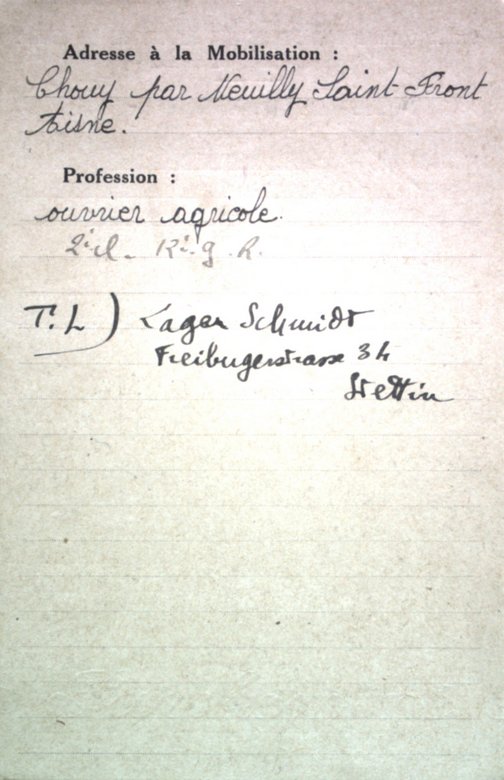 Adresse à la Mobilisation :
Chouy par Neuilly Saint-Front
Aisne.
Profession :
ouvrier agricole.
T.L) Lager Schmidt
Freibugerstrasse 34
Stettin